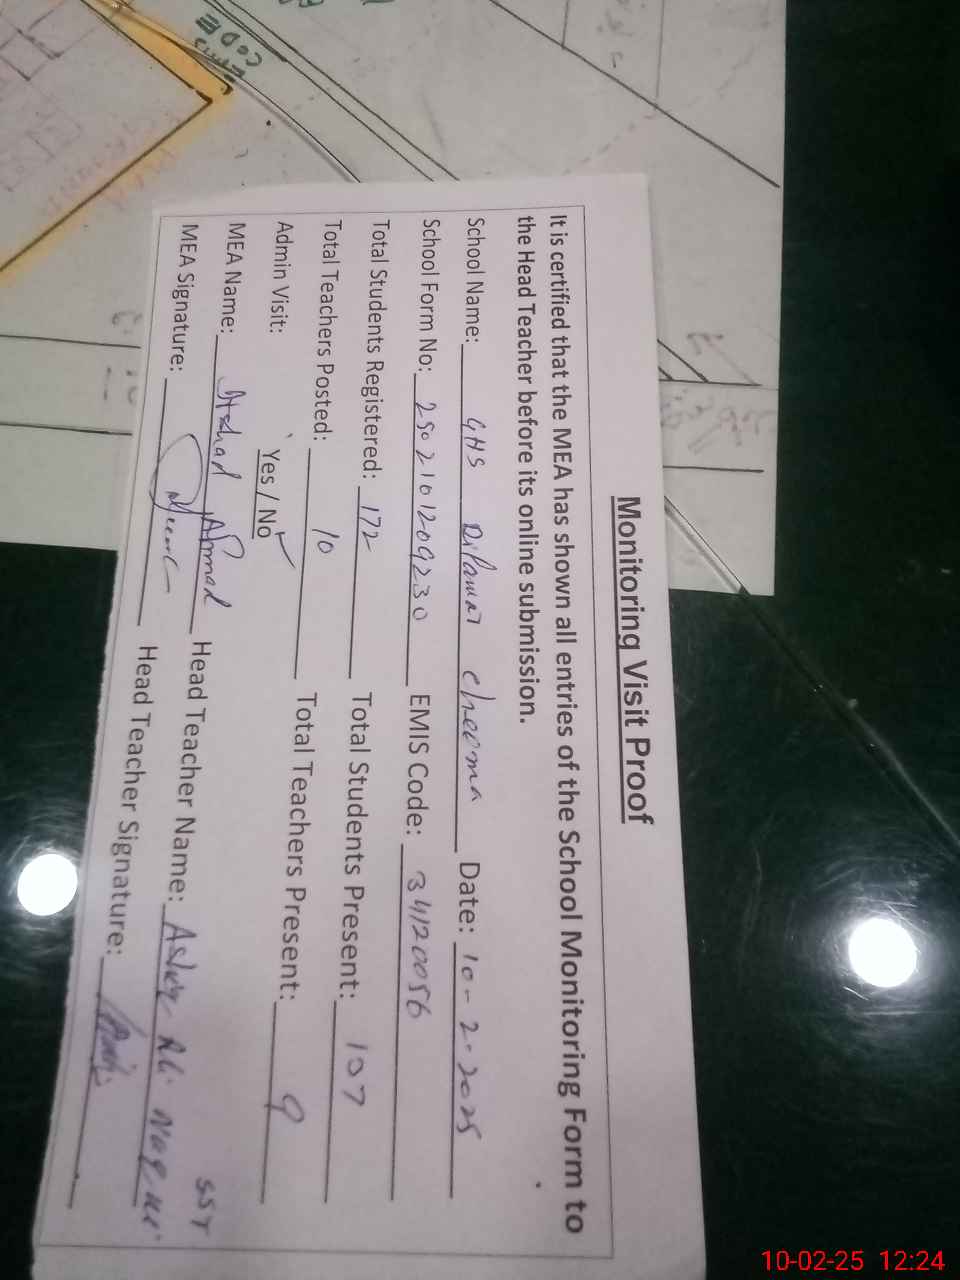 Monitoring Visit Proof
It is certified that the MEA has shown all entries of the School Monitoring Form to
the Head Teacher before its online submission.
School Name: GHS Dilawar Cheema Date: 10-2-2025
School Form No: 2502101209230 EMIS Code: 34120056
Total Students Registered: 172 Total Students Present: 107
Total Teachers Posted: 10 Total Teachers Present: 9
Admin Visit: Yes / No ✓
MEA Name: Ahmad Head Teacher Name: Ali SST
MEA Signature: Head Teacher Signature:
EMIS
CODE
10-02-25 12:24